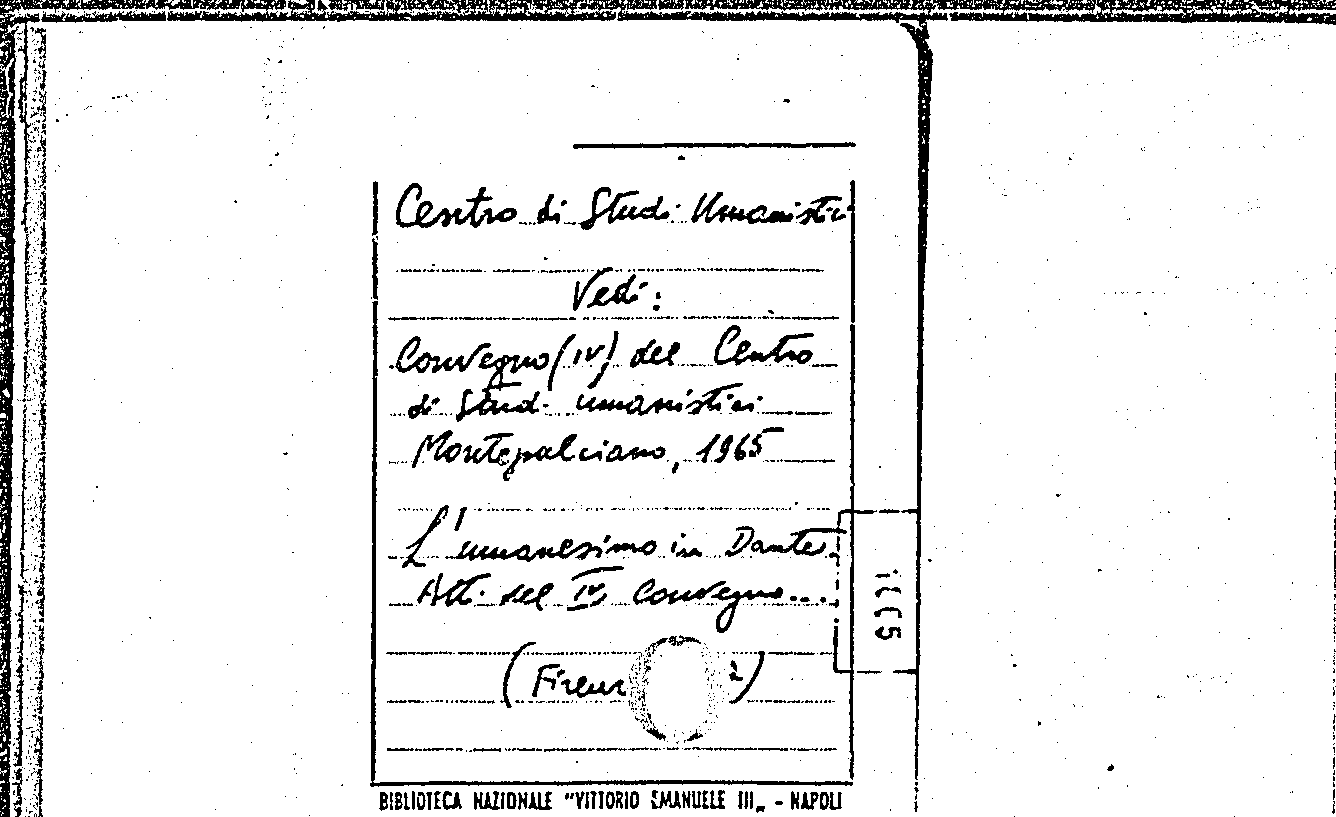 Centro di Studi Umanistici
Vedi:
Convegno (IV) del Centro
di Studi umanistici
Montepulciano, 1965
L'umanesimo in Dante.
Atti del IV Convegno...
(Firenz 2)
BIBLIOTECA NAZIONALE "VITTORIO EMANUELE III„ - NAPOLI